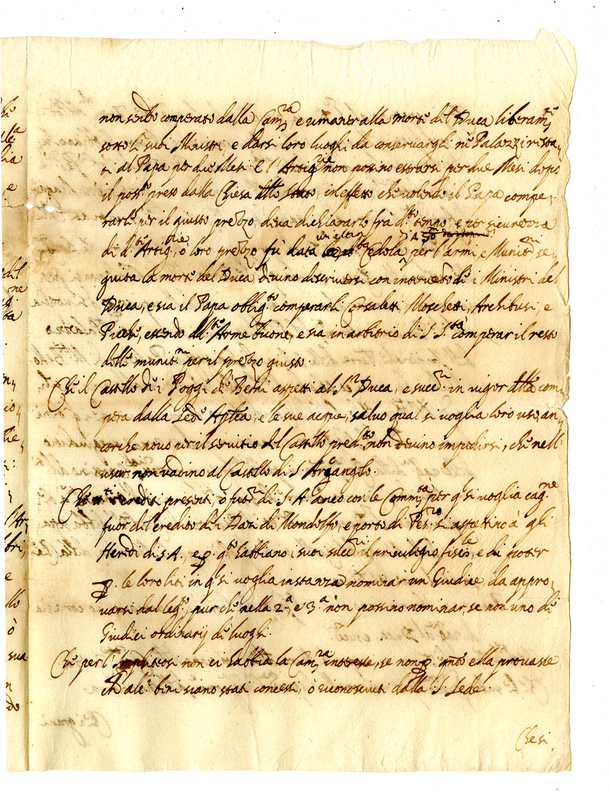 non sendo comperate dalla Cam.ra e rimanere alla morte del Duca liberam.te
sotto li suoi Ministri e darsi loro luoghi da conservarghi ne Palazzi resta
ti al Papa per due Mesi. E l'Artig.rie non possino estraersi per due Mesi dopo
il poss.o preso dalla Chiesa dello stato, in effetto che volendo il Papa compe,
rarle per il giusto prezzo, deva dichiararlo fra d.o tempo, e per sicurezza
di d.e Artig.rie o loro prezzo fu data Cedola per l'armi, e Munit.ni se,
guita la morte del Duca devino discriversi con intervento de i Ministri del
Duca, e sia il Papa oblig.to comperarli Corsaletti, Moschetti, Archibusi, e
Picche, essendo Arme buone, e sia in arbitrio di S. S.tà comperar il resto
delle munit.ni per il prezzo giusto.
Che il Castello de i Poggi de Berni aspetti al S.r Duca, e succ.ri in vigor della com
pera dalla Sede Ap.lica, e le sue acque, salvo qual si voglia loro uso, an,
corche novo per il servitio del Castello pred.to non devino impedirsi, che nell
uscir non vadino al Castello di S. Arcangelo.
Che crediti presenti, o fut.ri di S. A. anco con le Comm.tà per q.l si voglia cag.ne
fuor del credito de i Dazi di Mondolfo, e porto di Pes.ro si aspettino a gli
Heredi di S. A. e p. q.to habbiano i suoi succ.ri il privilegio fiscale, e di poter
p. le loro liti in q.l si voglia instanza nominar un Giudice, da appro,
varsi dal leg.to pur che nella 2.a e 3.a non possino nominar, se non uno de
Giudici ordinarij de luoghi.
Che per l' non ci habbia la Cam.ra interesse, se non p. q.to ella provasse
che tale beni siano stati concessi, o riconosciuti dalla S. Sede.
Che si